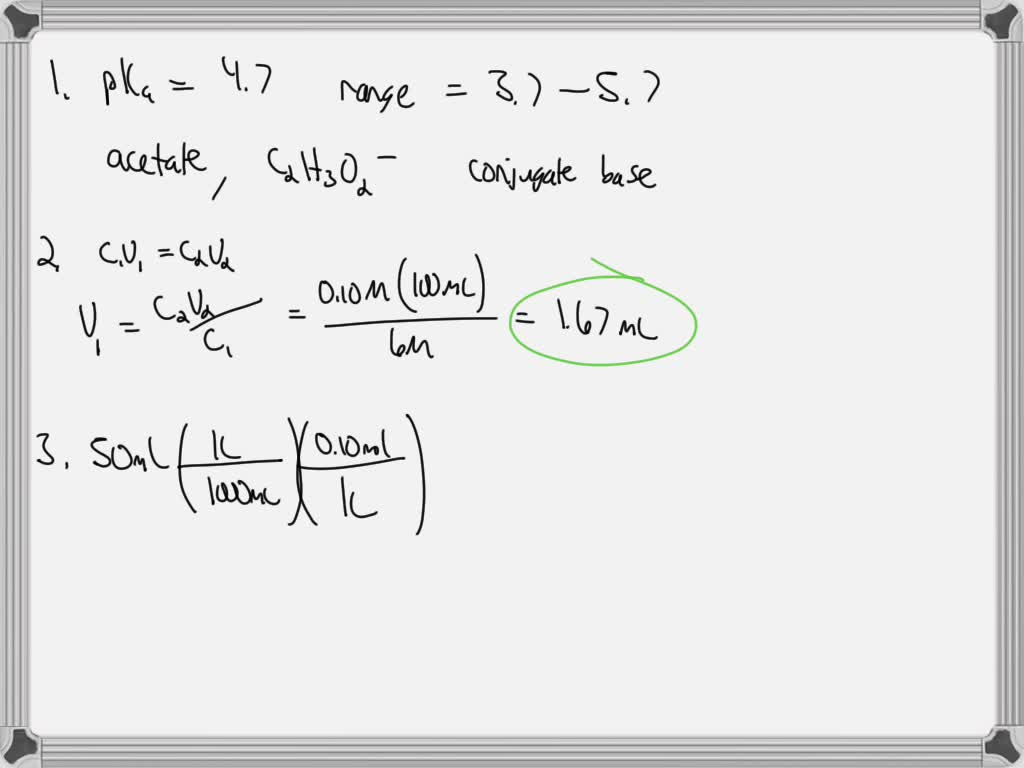 1. pKa = 4.7 range = 3.7 – 5.7
acetate, C₂H₃O₂⁻ conjugate base
2. C₁V₁ = C₂V₂
V₁ = C₂V₂/C₁ = 0.10M (100mL) / 6M = 1.67 mL
3. 50mL (1L / 1000mL)(0.10mol / 1L)